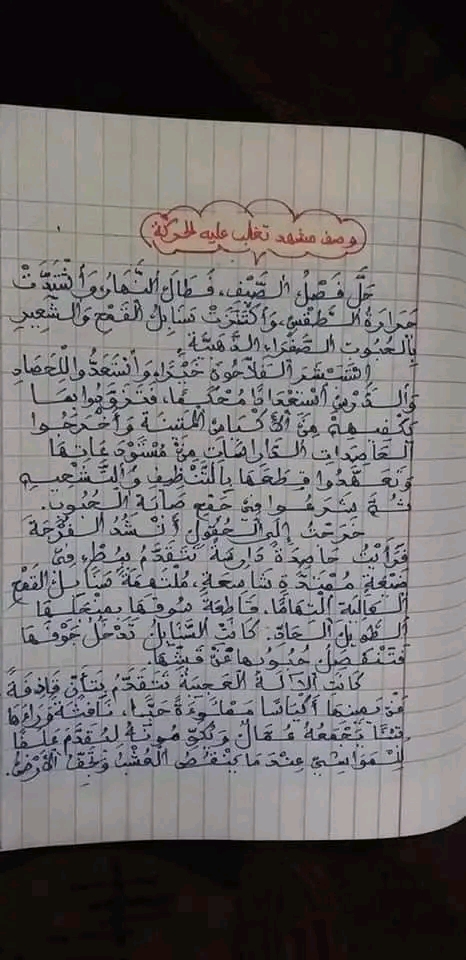 وصف مشهد تغلب عليه الحركة
حَلَّ فَصْلُ الصَّيْفِ، فَطَالَ النَّهَارُ وَاشْتَدَّتْ
حَرَارَةُ الطَّقْسِ وَاكْتَنَزَتْ سَنَابِلُ القَمْحِ وَالشَّعِيرِ
بِالحُبُوبِ الصَّفْرَاءِ الذَّهَبِيَّةِ.
اِسْتَبْشَرَ الفَلاَّحُونَ خَيْرًا، وَاسْتَعَدُّوا لِلْحَصَادِ
وَالدَّرْسِ اسْتِعْدَادًا مُحْكَمًا، فَتَزَوَّدُوا بِمَا
يَكْفِيهِمْ مِنَ الأَكْيَاسِ المَتِينَةِ وَأَخْرَجُوا
الحَاصِدَاتِ الدَّارِسَاتِ مِنْ مُسْتَوْدَعَاتِهَا
وَتَعَهَّدُوا قِطَعَهَا بِالتَّنْظِيفِ وَالتَّشْحِيمِ
ثُمَّ شَرَعُوا فِي جَمْعِ صَابَةِ الحُبُوبِ.
خَرَجْتُ إِلَى الحُقُولِ أَنْشُدُ الفُرْجَةَ
فَرَأَيْتُ حَاصِدَةً دَارِسَةً تَتَقَدَّمُ بِبُطْءٍ فِي
ضَيْعَةٍ مُمْتَدَّةٍ شَاسِعَةٍ، مُلْتَهِمَةً سَنَابِلَ القَمْحِ
العَالِيَةَ الْتِهَامًا، قَاطِعَةً سُوقَهَا بِمِنْجَلِهَا
الطَّوِيلِ الحَادِّ. كَانَتِ السَّنَابِلُ تَدْخُلُ جَوْفَهَا
فَتَنْفَصِلُ حُبُوبُهَا عَنْ قَشِّهَا.
كَانَتِ الآلَةُ العَجِيبَةُ تَتَقَدَّمُ بِتَأَنٍّ قَاذِفَةً
عَنْ يَمِينِهَا أَكْيَاسًا مَمْلُوءَةً حَبًّا، نَافِثَةً وَرَاءَهَا
تِبْنًا يَجْمَعُهُ عُمَّالٌ وَيُكَوِّمُونَهُ لِيُقَدَّمَ عَلَفًا
لِلْمَوَاشِي عِنْدَ مَا يَنْقَرِضُ العُشْبُ وَتَجِفُّ الأَرْضُ.